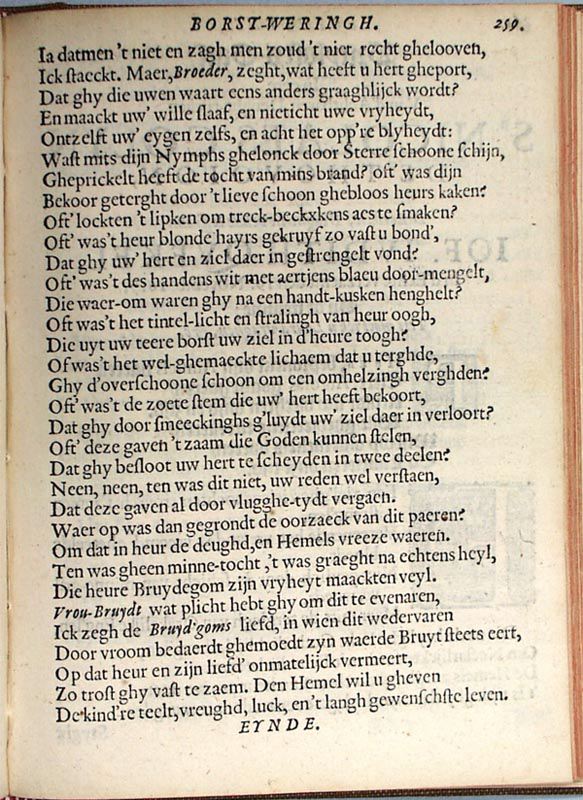 BORST-WERINGH. 259.
Ia datmen 't niet en zagh men zoud 't niet recht ghelooven,
Ick staeckt. Maer, Broeder, zeght, wat heeft u hert gheport,
Dat ghy die uwen waart eens anders graaghlijck wordt?
En maackt uw' wille slaaf, en nieticht uwe vryheydt,
Ontzelft uw' eygen zelfs, en acht het opp're blyheydt:
Wast mits dijn Nymphs ghelonck door Sterre schoone schijn,
Gheprickelt heeft de tocht van mins brand? oft' was dijn
Bekoor geterght door 't lieve schoon ghebloos heurs kaken?
Oft' lockten 't lipken om treck-beckxkens aes te smaken?
Oft' was't heur blonde hayrs gekruyf zo vast u bond',
Dat ghy uw' hert en ziel daer in gestrengelt vond?
Oft' was't des handens wit met aertjens blaeu door-mengelt,
Die waer-om waren ghy na een handt-kusken henghelt?
Oft was't het tintel-licht en stralingh van heur oogh,
Die uyt uw teere borst uw ziel in d'heure toogh?
Of was't het wel-ghemaeckte lichaem dat u terghde,
Ghy d'overschoone schoon om een omhelzingh verghden?
Oft' was't de zoete stem die uw' hert heeft bekoort,
Dat ghy door smeeckinghs g'luydt uw' ziel daer in verloort?
Oft' deze gaven 't zaam die Goden kunnen stelen,
Dat ghy besloot uw hert te scheyden in twee deelen?
Neen, neen, ten was dit niet, uw reden wel verstaen,
Dat deze gaven al door vlugghe-tydt vergaen.
Waer op was dan gegrondt de oorzaeck van dit paeren?
Om dat in heur de deughd, en Hemels vreeze waeren.
Ten was gheen minne-tocht, 't was graeght na echtens heyl,
Die heure Bruydegom zijn vryheyt maackten veyl.
Vrou-Bruydt wat plicht hebt ghy om dit te evenaren,
Ick zegh de Bruyd'goms liefd, in wien dit wedervaren
Door vroom bedaerdt ghemoedt zyn waerde Bruyt steets eert,
Op dat heur en zijn liefd' onmatelijck vermeert,
Zo trost ghy vast te zaem. Den Hemel wil u gheven
De kind're teelt, vreughd, luck, en 't langh gewenschste leven.
EYNDE.